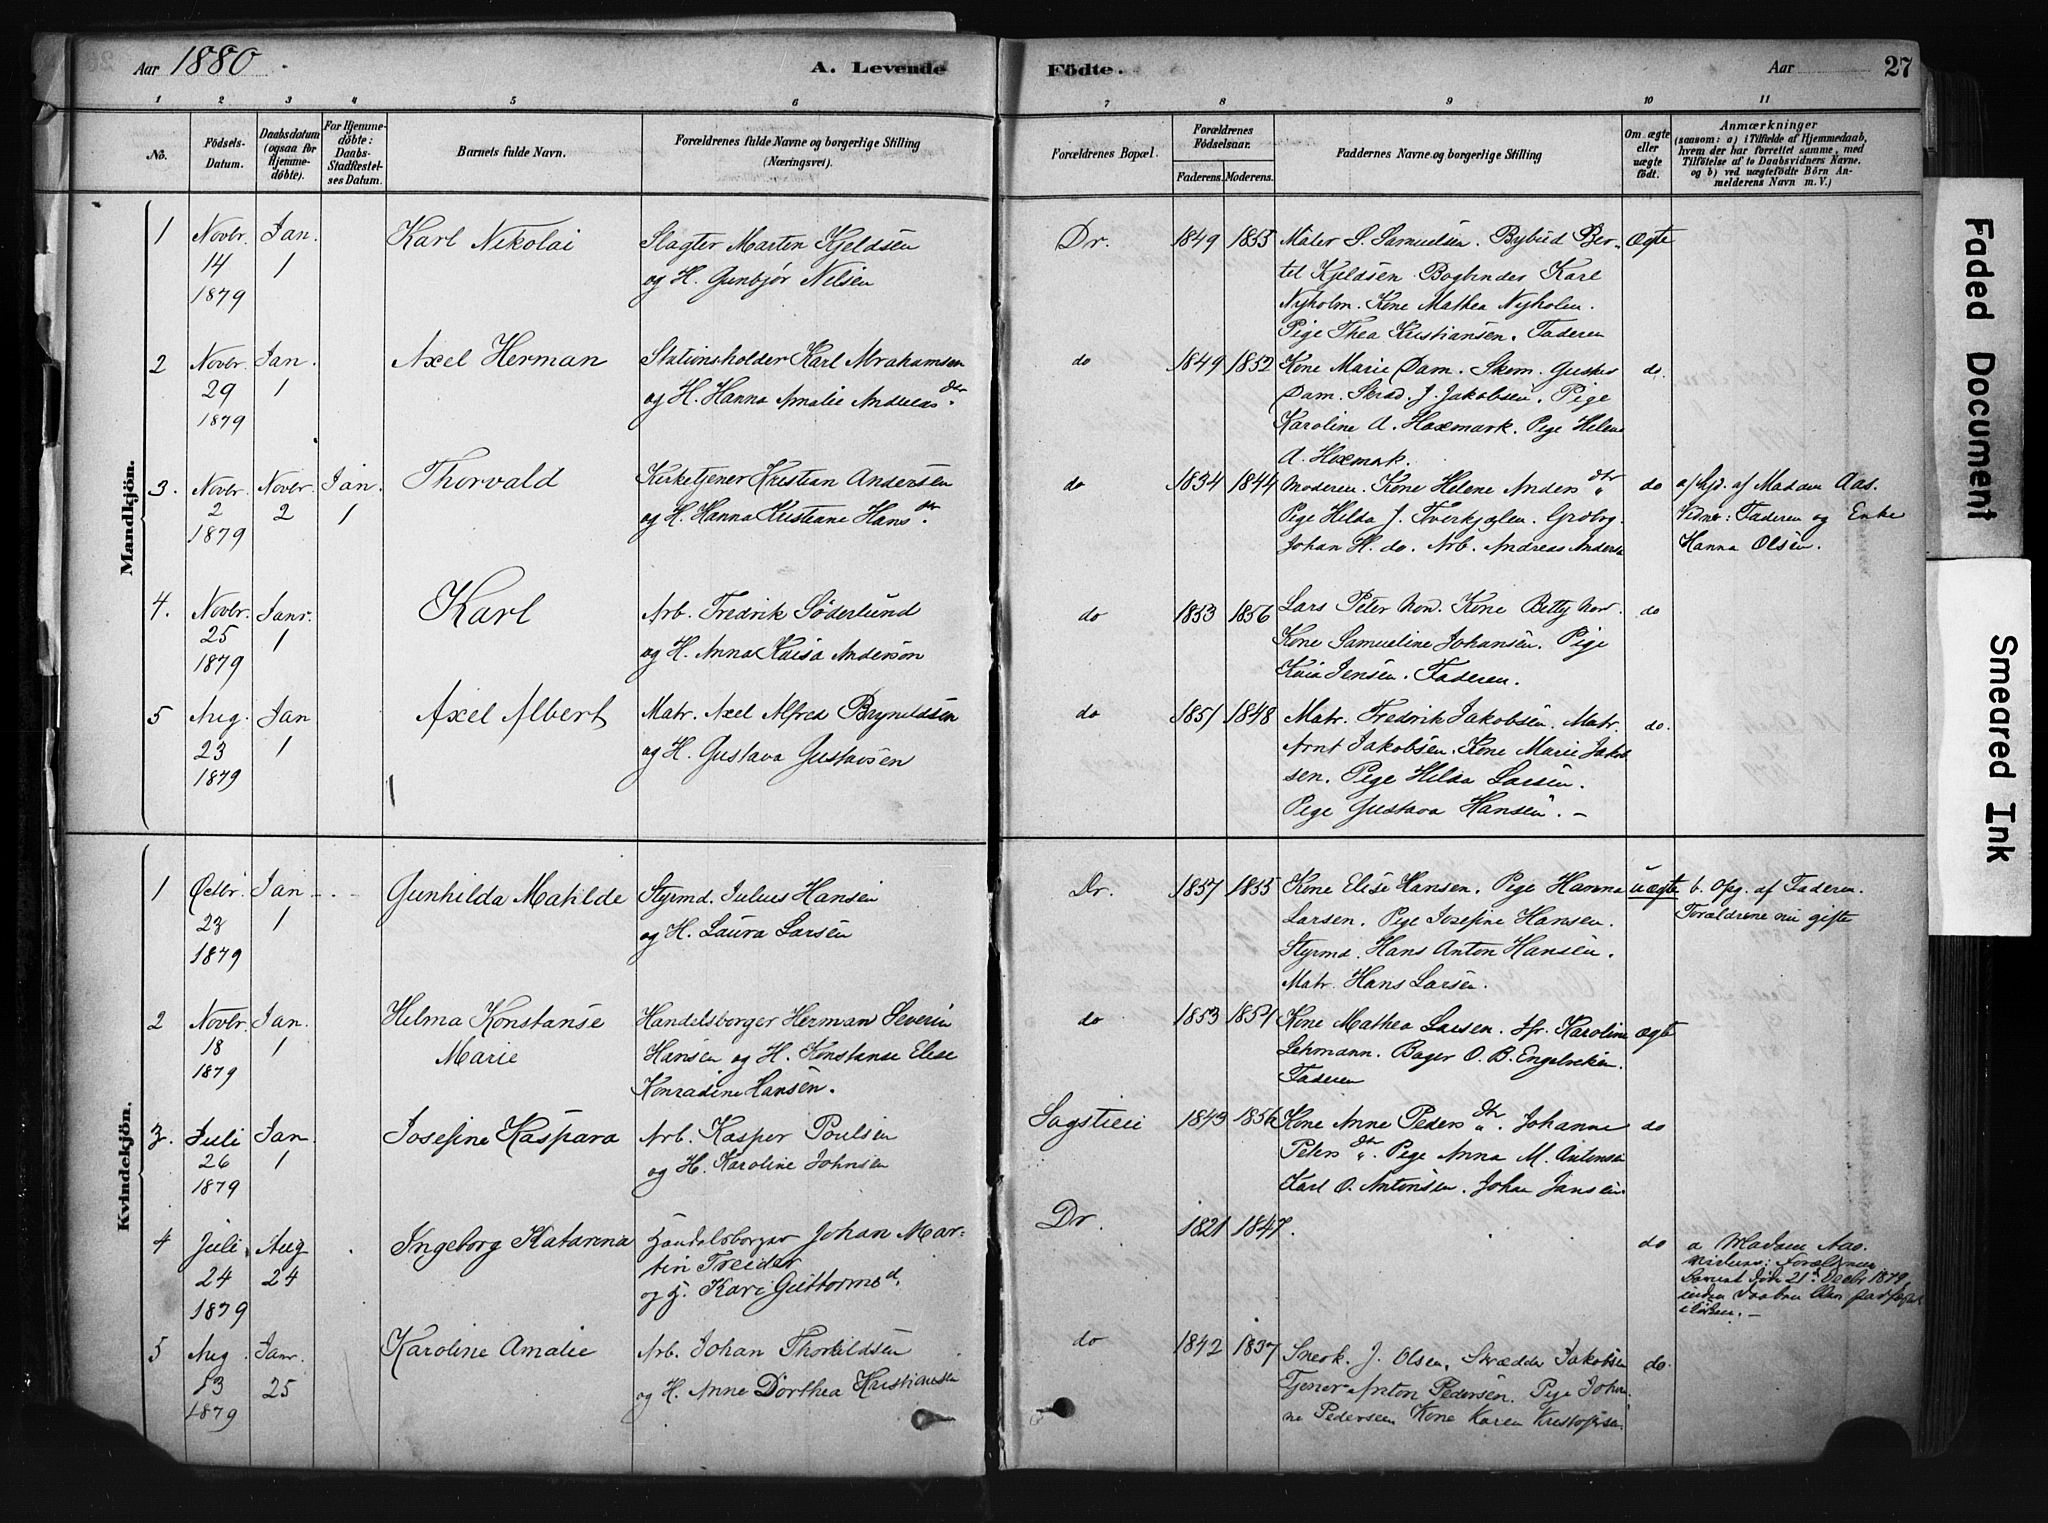 Aar 1880. A. Levende Födte. Aar 27
1 2 3 4 5 6 7 8 9 10 11
No. Födsels-Datum. Daabsdatum (ogsaa for Hjemme-döbte). For Hjemme-döbte: Daabs-Stadfæstel-ses Datum. Barnets fulde Navn. Forældrenes fulde Navne og borgerlige Stilling (Næringsvei). Forældrenes Bopæl. Forældrenes Födselsaar. Faderens. Moderens. Faddernes Navne og borgerlige Stilling Om ægte eller uægte födt. Anmærkninger
(saasom: a) i Tilfælde af Hjemmedaab,
hvem der har forrettet samme, med
Tilföielse af to Daabsvidners Navne.
og b) ved uægtefödte Börn An-
melderens Navn m.V.)
Mandkjön.
1 Novbr. Jan. Karl Nikolai Slagter Marten Kjeldsen Dr. 1849 1855 Maler S. Samuelsen. Bybud Ber- Ægte
14 1 og H. Gunbjør Nilsen tel Kjeldsen. Bogbinder Karl
1879 Nyholm. Kone Mathea Nyholm.
Pige Thea Kristiansen. Faderen
2 Novbr. Jan. Axel Herman Stationsholder Karl Abrahamsen do 1849 1852 Kone Marie Dam. Skom. Gustav do.
29 1 og H. Hanna Amalie Andreas dtr. Dam. Skrad. J. Jakobsen. Pige
1879 Karoline A. Hoxmark. Pige Helene
A. Hoxmark.
3. Novbr. Novbr. Jan. Thorvald Kirketjener Kristian Andersen do 1834 1844 Moderen. Kone Helene Anders dtr do a/ Hjd. af Madam Aas.
2 2 1 og H. Hanna Kristiane Hans dtr. Pige Hilda J. Tverkjælen. Grovbg. Vidner: Faderen og Enke
1879 Johan H. do. Arb. Andreas Anders Hanna Olsen.
4. Novbr. Janr. Karl Arb. Fredrik Söderlund do 1853 1856 Lars Peter Kone Betty do
25 1 og H. Anna Kaisa Anderson Kone Samueline Johansen. Pige
1879 Kaia Jensen. Faderen.
5 Aug. Jan Axel Albert Matr. Axel Alfred Brynildsen do 1851 1848 Matr. Fredrik Jakobsen. Matr. do.
23 1 og H. Gustava Gustavsen Arnt Jakobsen. Kone Marie Jakob
1879 sen. Pige Hilda Larsen.
Pige Gustava Hansen. –
Kvindekjön.
1 Octbr. Jan Gunhilda Matilde Styrmd. Julius Hansen Dr. 1857 1855 Kone Elise Hansen. Pige Hanna uægte b. Opg. af Faderen.
23 1 og H. Laura Larsen Larsen. Pige Josefine Hansen. Forældrene nu gifte
1879 Styrmd. Hans Anton Hansen.
Matr. Hans Larsen.
2 Novbr. Jan. Helma Konstanse Handelsborger Herman Severin do 1853 1854 Kone Mathea Larsen. Karoline ægte
18 1 Marie Hansen og H. Konstanse Elise Lehmann. Bager O. B. Engelviken.
1879 Konradine Hansen. Faderen
3. Juli Jan. Josefine Kaspara Arb. Kasper Poulsen Sagstien 1843 1856 Kone Anne Peders dtr. Johanne do
26 1 og H. Karoline Johnsen Peters dtr. Pige Anna M. Antonsen
1879 Karl O. Antonsen. Johan Jansen.
4 Juli Aug Ingeborg Katarina Handelsborger Johan Mar- Dr. 1821 1847. do a Madam Aas.
24 24 tin Treider Vidner: Forældrene
1879 og H. Kari Guttormsd. Barnet døde 21d Decbr 1879,
inden Daaben
i Kirken. –
5 Aug. Janr. Karoline Amalie Arb. Johan Thorkildsen do 1842 1837 Snedk. J. Olsen. Skrædder Jakobsen do
13 25 og H. Anne Dorthea Kristiansen Tjener Anton Pedersen. Pige Johan
1879 ne Pedersen Kone Karen Kristofersen
Faded Document
Smeared Ink